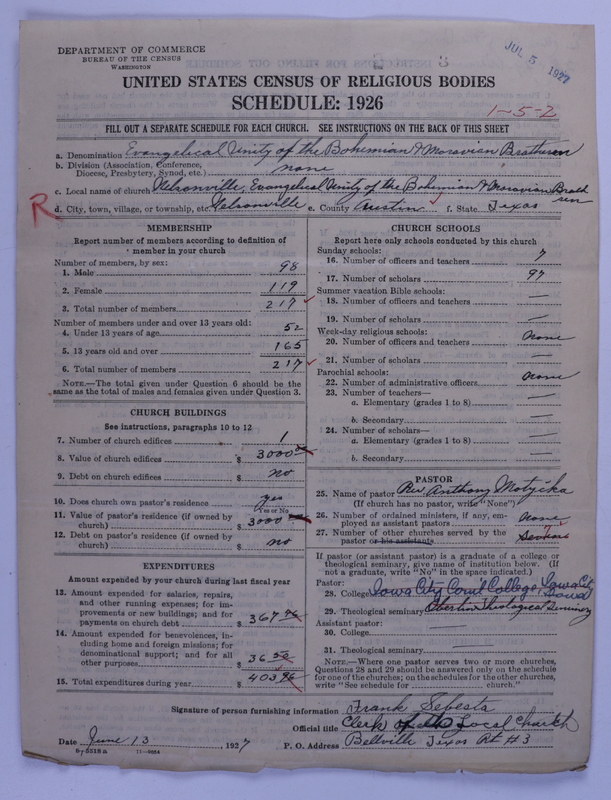 DEPARTMENT OF COMMERCE
BUREAU OF THE CENSUS
WASHINGTON
JUL 5 1927
UNITED STATES CENSUS OF RELIGIOUS BODIES
SCHEDULE: 1926
1-5-2
FILL OUT A SEPARATE SCHEDULE FOR EACH CHURCH. SEE INSTRUCTIONS ON THE BACK OF THIS SHEET
a. Denomination Evangelical Unity of the Bohemian & Moravian Brethren
b. Division (Association, Conference, Diocese, Presbytery, Synod, etc.) none
c. Local name of church Nelsonville, Evangelical Unity of the Bohemian & Moravian Brethren
R d. City, town, village, or township, etc. Nelsonville e. County Austin f. State Texas
MEMBERSHIP
Report number of members according to definition of member in your church
Number of members, by sex:
1. Male 98
2. Female 119
3. Total number of members 217
Number of members under and over 13 years old:
4. Under 13 years of age 52
5. 13 years old and over 165
6. Total number of members 217
NOTE.—The total given under Question 6 should be the same as the total of males and females given under Question 3.
CHURCH BUILDINGS
See instructions, paragraphs 10 to 12
7. Number of church edifices 1
8. Value of church edifices $ 3000 00
9. Debt on church edifices $ no
10. Does church own pastor's residence yes
Yes or No
11. Value of pastor's residence (if owned by church) $ 3000
12. Debt on pastor's residence (if owned by church) $ no
EXPENDITURES
Amount expended by your church during last fiscal year
13. Amount expended for salaries, repairs, and other running expenses; for improvements or new buildings; and for payments on church debt $ 367 46
14. Amount expended for benevolences, including home and foreign missions; for denominational support; and for all other purposes $ 36 50
15. Total expenditures during year $ 403 96
CHURCH SCHOOLS
Report here only schools conducted by this church
Sunday schools:
16. Number of officers and teachers 7
17. Number of scholars 97
Summer vacation Bible schools:
18. Number of officers and teachers —
19. Number of scholars —
Week-day religious schools:
20. Number of officers and teachers none
21. Number of scholars —
Parochial schools:
22. Number of administrative officers none
23. Number of teachers—
a. Elementary (grades 1 to 8) —
b. Secondary —
24. Number of scholars—
a. Elementary (grades 1 to 8) —
b. Secondary —
PASTOR
25. Name of pastor Rev. Anthony Motycka
(If church has no pastor, write "None")
26. Number of ordained ministers, if any, employed as assistant pastors none
27. Number of other churches served by the pastor or his assistants 7
If pastor (or assistant pastor) is a graduate of a college or theological seminary, give name of institution below. (If not a graduate, write "No" in the space indicated.)
Pastor:
28. College Iowa City Coml College, Iowa City Iowa
29. Theological seminary Oberlin Theological Seminary
Assistant pastor:
30. College
31. Theological seminary —
NOTE.—Where one pastor serves two or more churches, Questions 28 and 29 should be answered only on the schedule for one of the churches; on the schedules for the other churches, write "See schedule for church."
Signature of person furnishing information Frank Sebesta
Official title Clerk of Local Church
Date June 13 1927 P. O. Address Bellville Texas Rt #3
11—8664